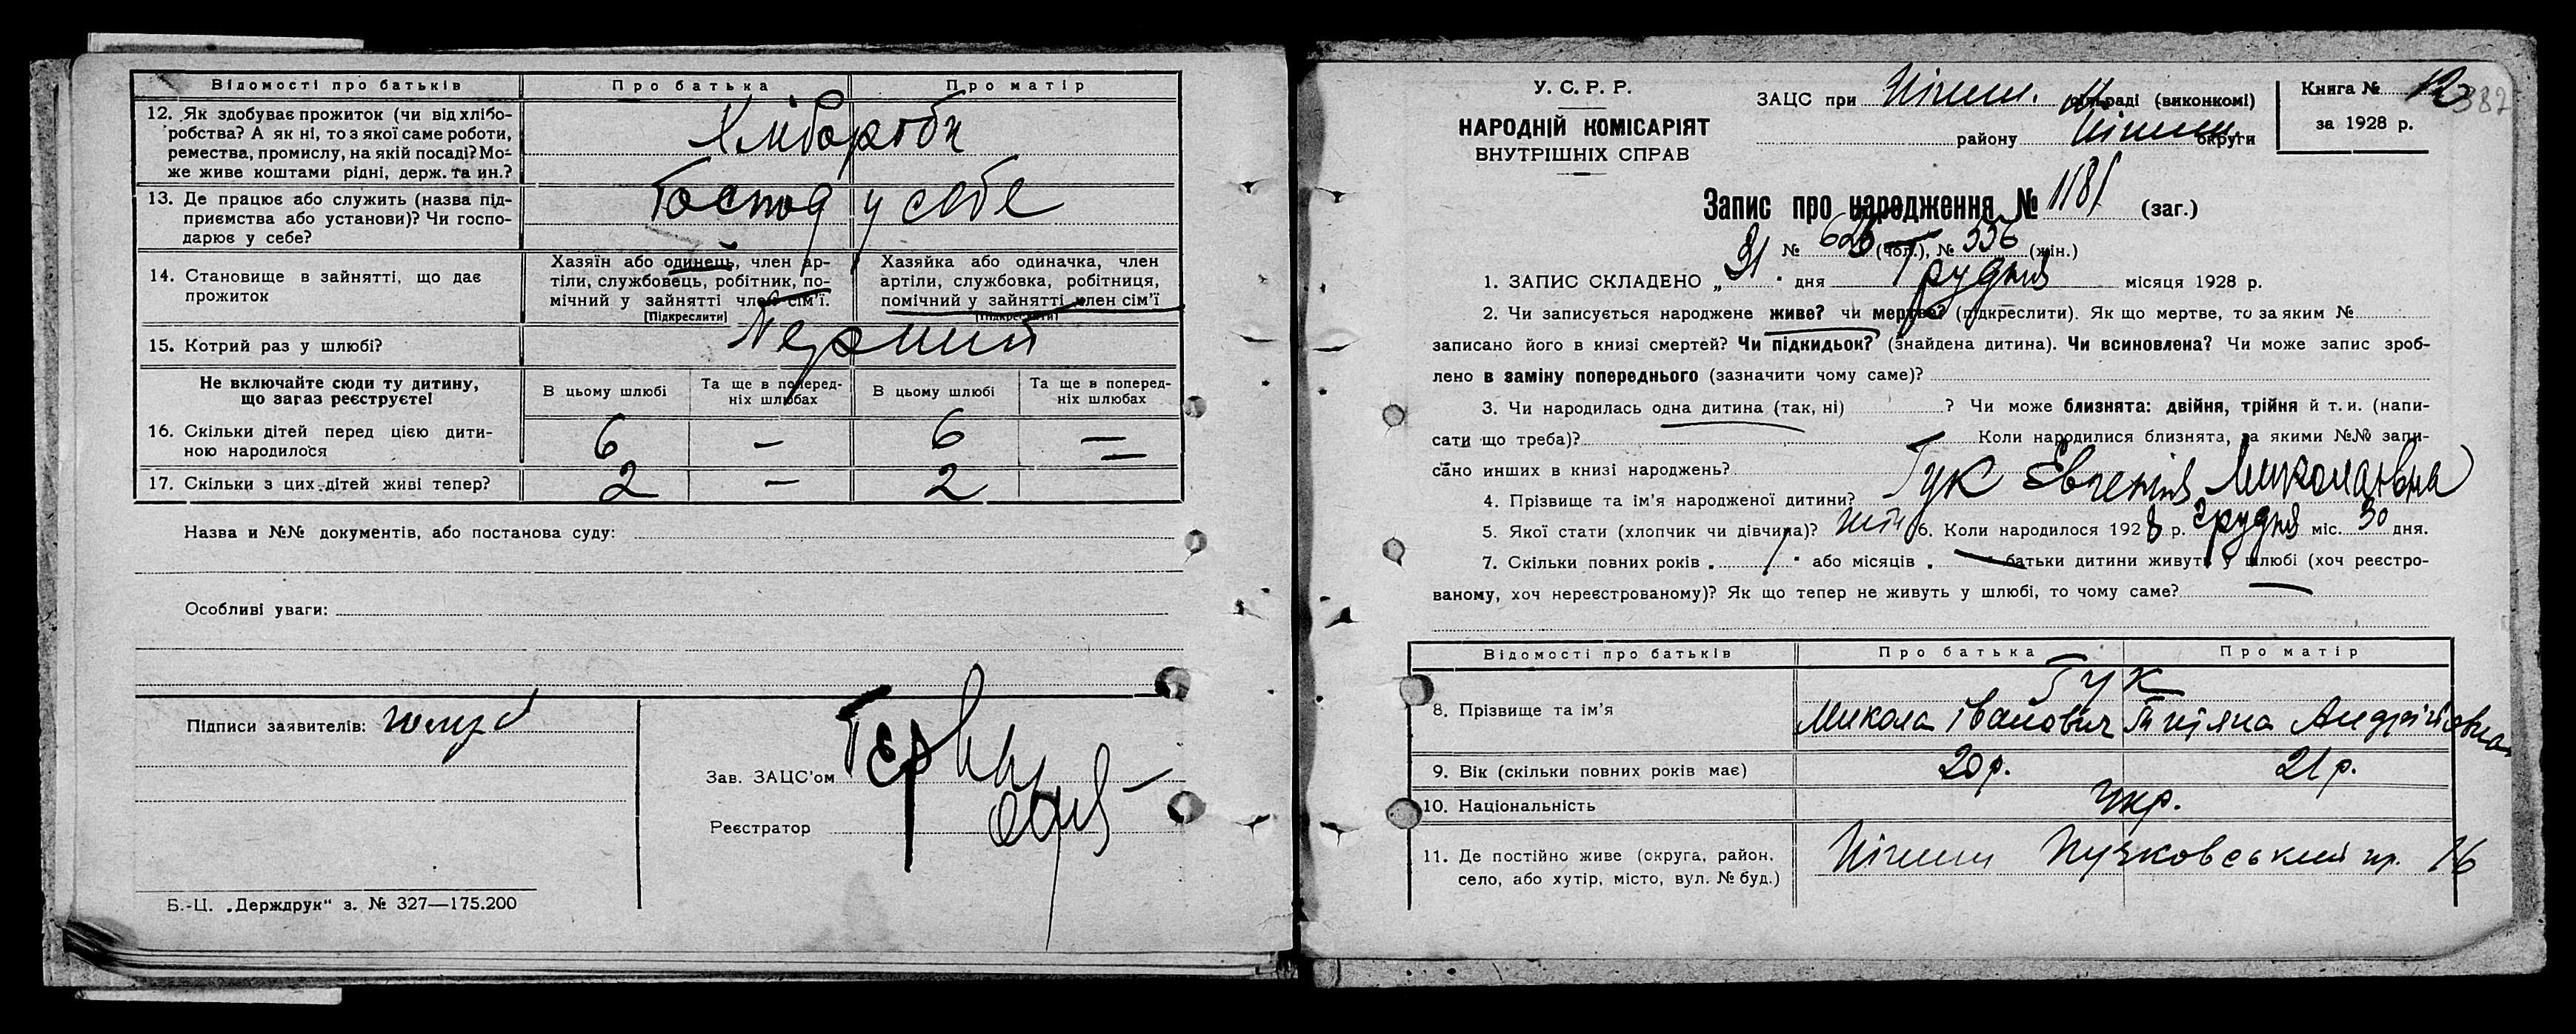 Відомості про батьків Про батька Про матір
12. Як здобуває прожиток (чи від хлібо-
робства? А як ні, то з якої саме роботи,
ремества, промислу, на якій посаді? Мо-
же живе коштами рідні, держ. та ин.?
Хлібороби
13. Де працює або служить (назва під-
приємства або установи)? Чи госпо-
дарює у себе?
Господ у себе
14. Становище в зайнятті, що дає
прожиток
Хазяїн або одинець, член ар-
тіли, службовець, робітник, по-
мічний у зайнятті член сім'ї.
[Підкреслити]
Хазяйка або одиначка, член
артіли, службовка, робітниця,
помічний у зайнятті член сім'ї
[Підкреслити]
15. Котрий раз у шлюбі? Перший
Не включайте сюди ту дитину,
що загаз реєструєте!
В цьому шлюбі
Та ще в поперед-
ніх шлюбах
В цьому шлюбі
Та ще в поперед-
ніх шлюбах
16. Скільки дітей перед цією дити-
ною народилося
6 – 6 –
17. Скільки з цих дітей живі тепер? 2 – 2 –
Назва и №№ документів, або постанова суду:
Особливі уваги:
Підписи заявителів:
Зав. ЗАЦС'ом
Реєстратор
Б.-Ц. „Держдрук“ з. № 327—175.200
У. С. Р. Р.
НАРОДНІЙ КОМІСАРІЯТ
ВНУТРІШНІХ СПРАВ
ЗАЦС при Ніжин. сільраді (виконкомі)
району Ніжин. округи
Книга № 12
за 1928 р.
387
Запис про народження № 1181 (заг.)
№ 625 (чол.), № 556 (жін.)
1. ЗАПИС СКЛАДЕНО „31“ дня Грудня місяця 1928 р.
2. Чи записується народжене живе? чи мертве? (підкреслити). Як що мертве, то за яким №
записано його в книзі смертей? Чи підкидьок? (знайдена дитина). Чи всиновлена? Чи може запис зроб-
лено в заміну попереднього (зазначити чому саме)?
3. Чи народилась одна дитина (так, ні) ? Чи може близнята: двійня, трійня й т. и. (напи-
сати що треба)? Коли народилися близнята, за якими №№ запи-
сано инших в книзі народжень?
4. Прізвище та ім'я народженої дитини? Гук Евгенія Миколаївна
5. Якої стати (хлопчик чи дівчина)? жін 6. Коли народилося 1928 р. грудня міс. 30 дня.
7. Скільки повних років „ “ або місяців „ – “ батьки дитини живуть у шлюбі (хоч реєстро-
ваному, хоч нереєстрованому)? Як що тепер не живуть у шлюбі, то чому саме? –
Відомості про батьків Про батька Про матір
Гук
8. Прізвище та ім'я Микола Іванович Тетяна Андріївна
9. Вік (скільки повних років має) 20 р. 21 р.
10. Національність Укр.
11. Де постійно живе (округа, район,
село, або хутір, місто, вул. № буд.)
Ніжин 16